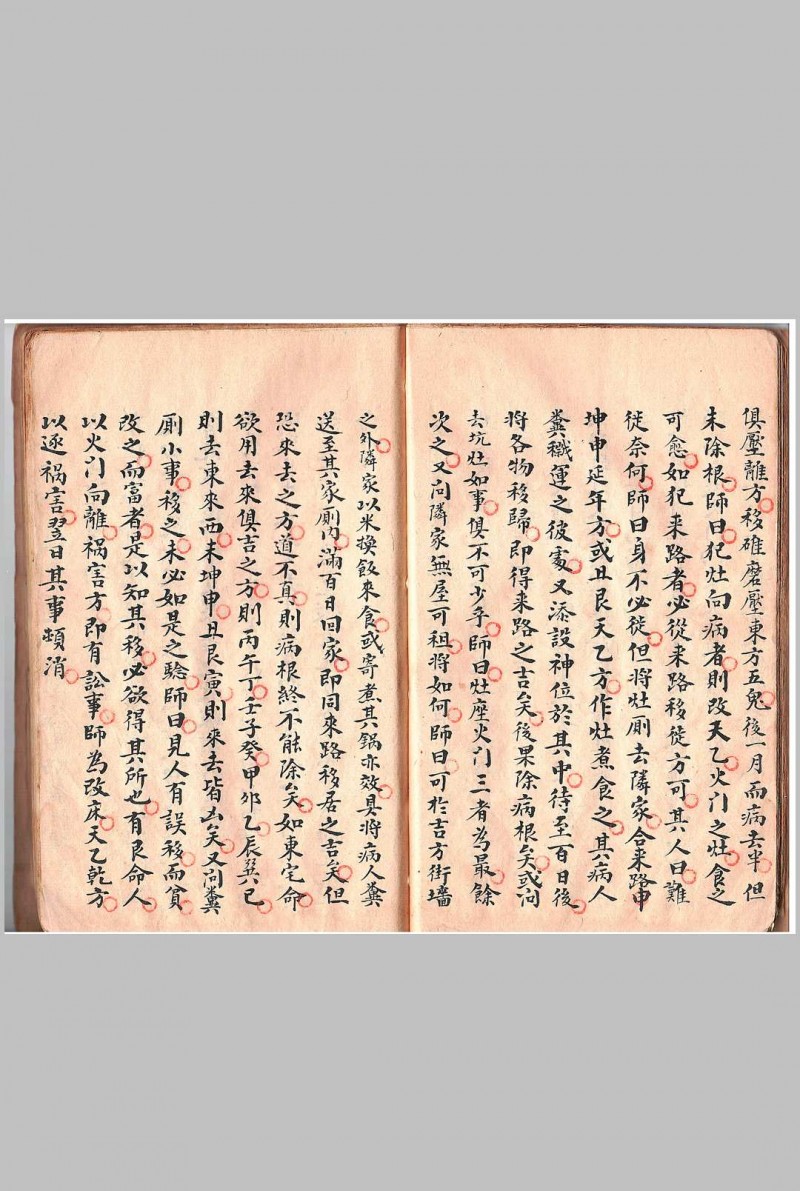 俱壓離方移碓磨壓東方五鬼後一月而病去半但
未除根師曰犯灶向病者則改天乙火门之灶食之
可愈如犯来路者必從来路移徙方可其人曰難
徙奈何師曰身不必徙但将灶厠去隣家合来路申
坤申延年方或丑艮天乙方作灶煮食之其病人
糞穢運之彼處又添設神位於其中待至百日後
将各物移歸即得来路之吉矣後果除病根矣或问
去坑灶如事俱不可少乎師曰灶座火门三者為最餘
次之又问隣家無屋可租将如何師曰可於吉方街墻
之外隣家以米換飯來食或寄煮其鍋亦效具将病人糞
送至其家厠内滿百日回家即同來路移居之吉矣但
恐來去之方道不真則病根終不能除矣如東宅命
欲用去來俱吉之方則丙午丁壬子癸甲卯乙辰巽巳
則去東來西未坤申丑艮寅則來去皆凶矣又问糞
厠小事移之未必如是之驗師曰見人有誤移而貧
改之而富者是以知其移必欲得其所也有艮命人
以火门向離祸害方即有訟事師為改床天乙乾方
以逐祸害翌日其事頓消